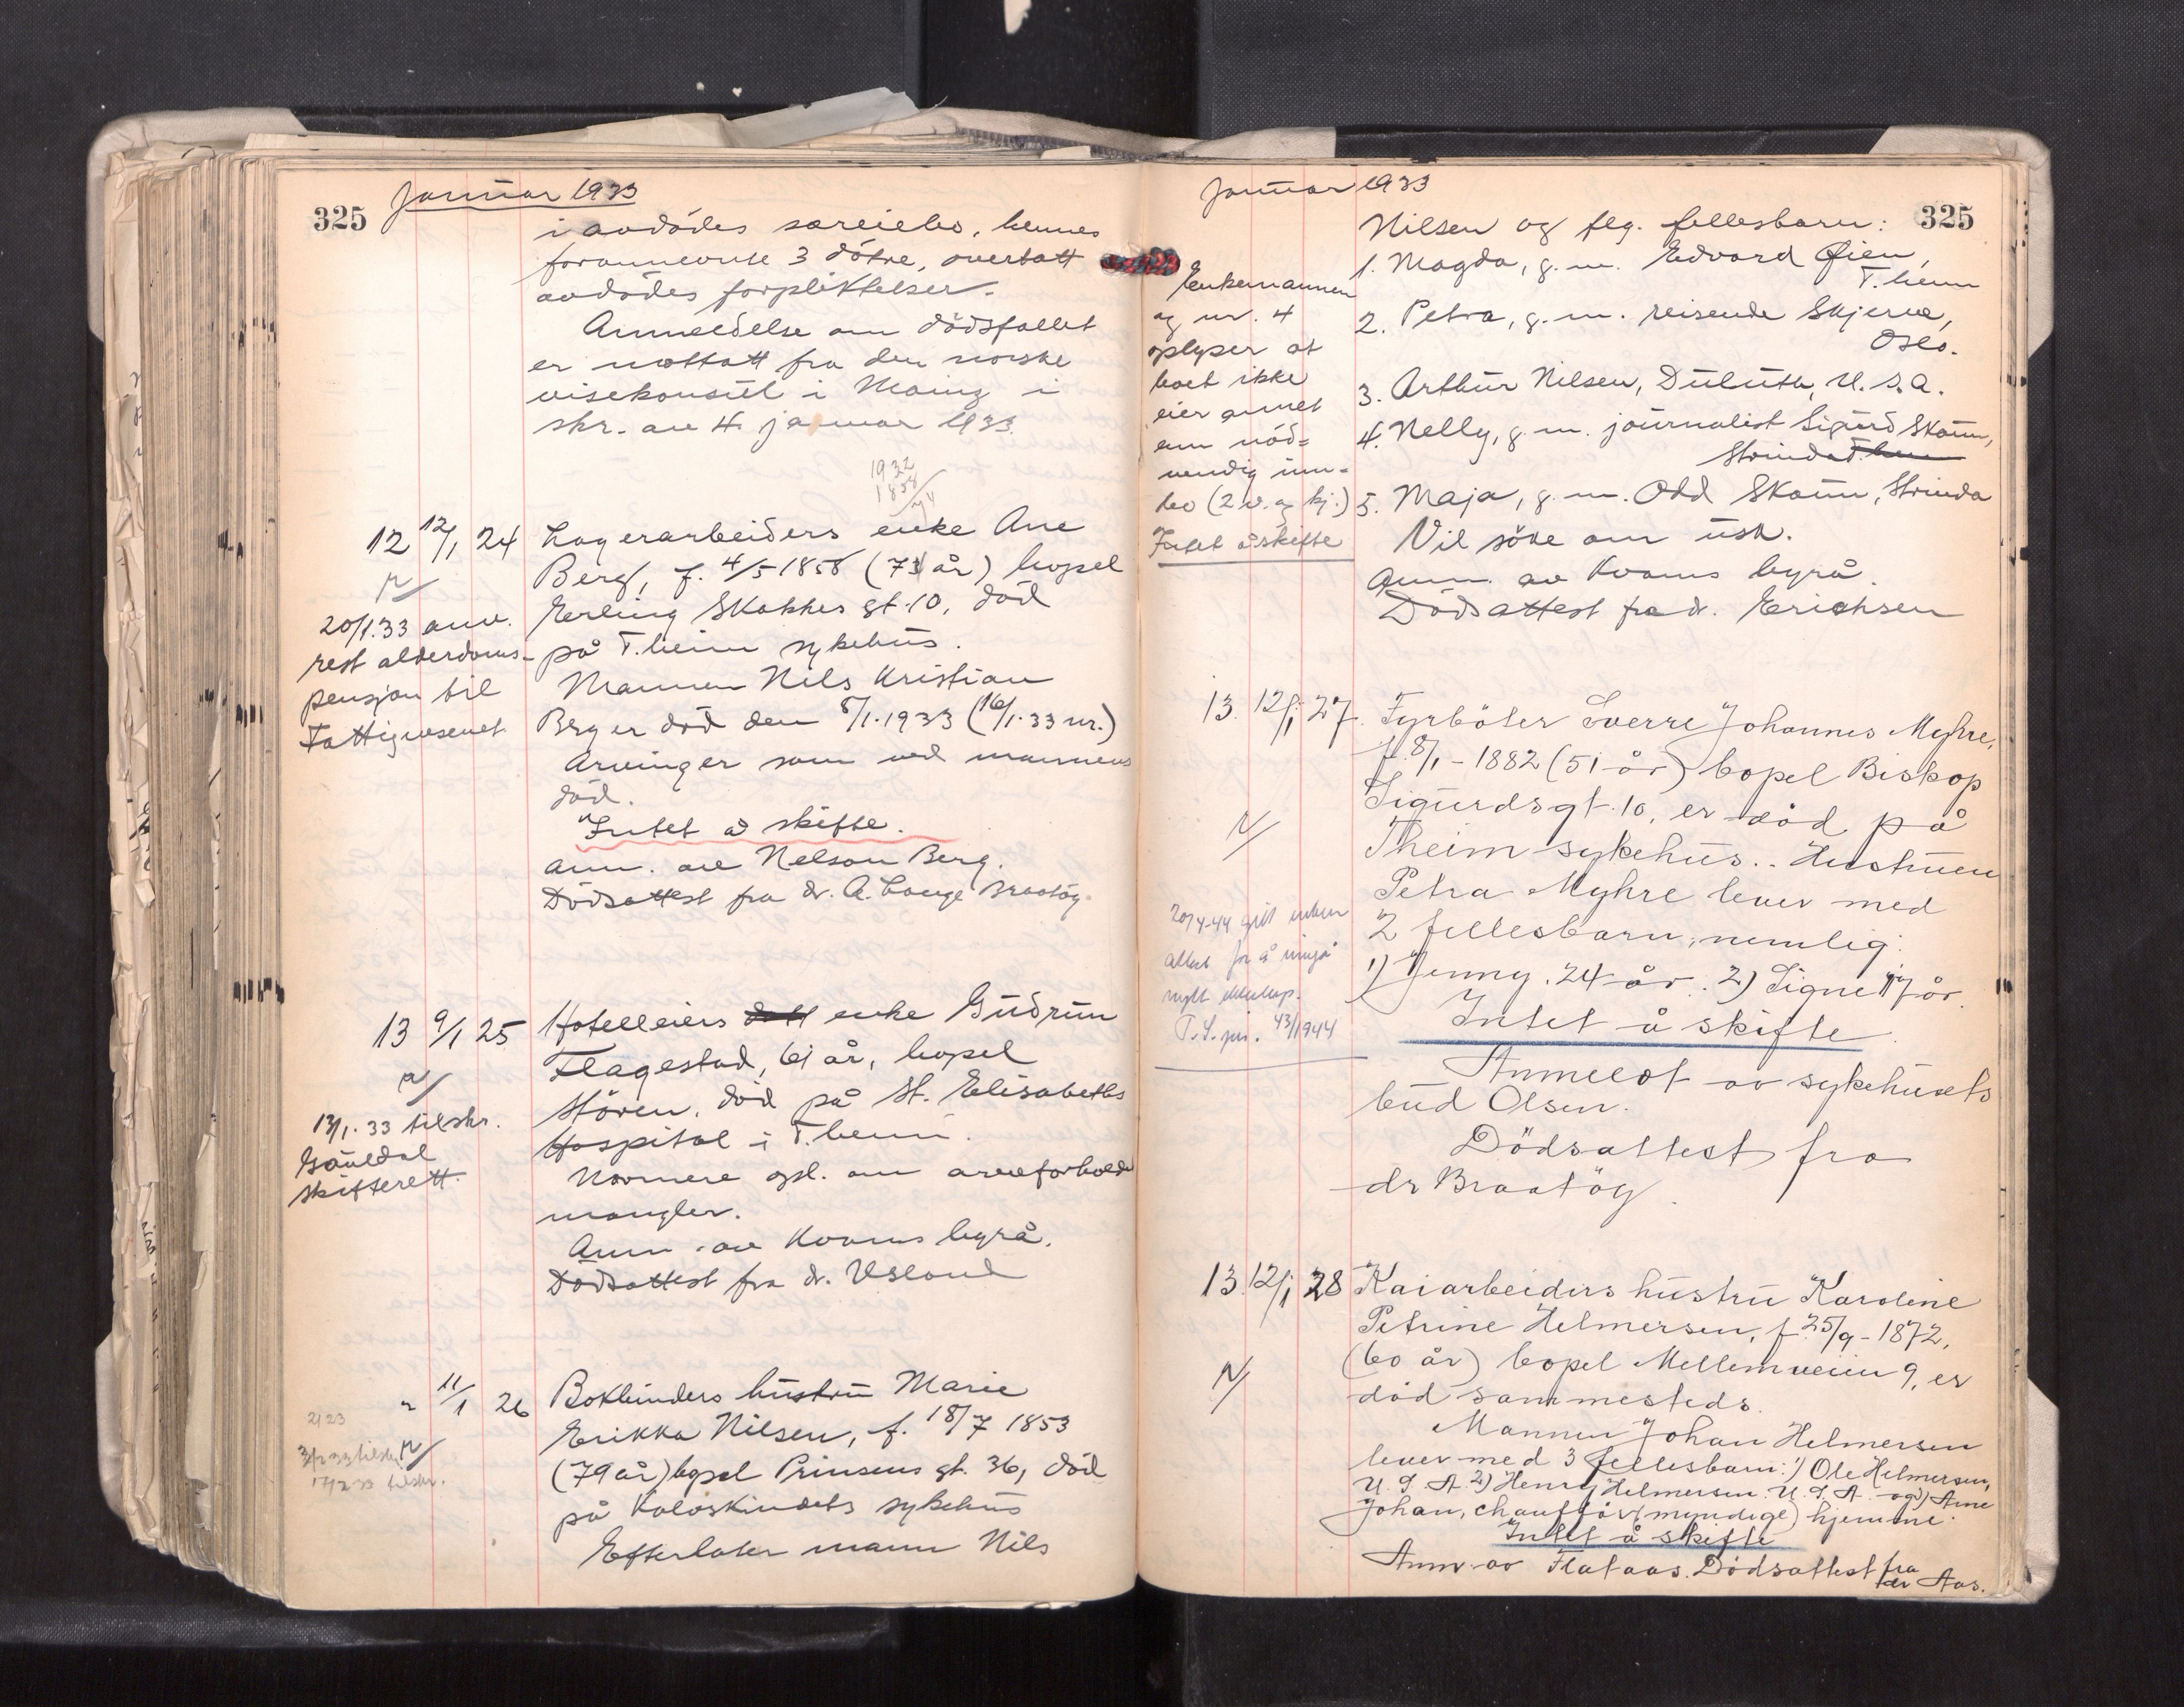 325
Januar 1933
i avdödes særeiebo, hennes
forannevnte 3 döttre, overtatt
avdödes forpliktelser.
Anmeldelse om dödsfallet
er mottatt fra den norske
visekonsul i Mainz i
skr. av 4. januar 1933.
1932
1858
74
12 12/1 24 Lagerarbeiders enke Ane
Berg, f. 4/5 1858 (73 år) bopel
Erling Skakkes gt. 10, död
på T.heim sykehus.
Mannen Nils Kristian
Berg er död den 8/1.1933 (16/1.33 nr.)
Arvinger som ved mannens
död.
Intet å skifte.
Anm. av Nelson Berg.
Dödsattest fra dr. A. Lange Braatöy.
20/1.33 anv.
rest alderdoms-
pensjon til
Fattigvesenet.
13 9/1 25 Hotelleiers enke Gudrun
Flagestad, 61 år, bopel
Stören, död på St. Elisabeths
Hospital i T.heim.
Nærmere opl. om arveforhold
mangler.
Anm. av Kvams byrå.
Dödsattest fra dr. Usland
13/1.33 tilskr.
Gauldal
skifterett.
" 11/1 26 Bokbinders hustru Marie
Erikka Nilsen, f. 18/7 1853
(79 år) bopel Prinsens gt. 36, död
på Kalvskindets sykehus
Efterlater mann Nils
2123
3/2 33 tilskr.
17/2 33 tilskr.
Januar 1933
325
Nilsen og flg. fellesbarn:
1. Magda, g.m. Edvard Öien,
T.heim
2. Petra, g.m. reisende Skjerve,
Oslo.
3. Arthur Nilsen, Duluth, U.S.A.
4. Nelly, g.m. journalist Sigurd Skaun,
Strinda T.heim
5. Maja, g.m. Odd Skaun, Strinda
Vil söke om usk.
Anm. av Kvams byrå.
Dödsattest fra dr. Erichsen
Enkemannen
og nr. 4
oplyser at
boet ikke
eier annet
enn nöd-
vendig inn-
bo (2 v. og kj.)
Intet å skifte
13. 12/1 27. Fyrböter Sverre Johannes Myhre,
f. 8/1 - 1882 (51 år) bopel Biskop
Sigurdsgt. 10, er död på
Theim sykehus. Hustruen
Petra Myhre lever med
2 fellesbarn, nemlig:
1) Jenny. 24 år. 2) Signe 17 år.
Intet å skifte.
Anmeldt av sykehusets
bud Olsen.
Dödsattest fra
dr Braatöy.
20/4-44 gitt enken
attest for å inngå
nytt ekteskap.
43/1944
13. 12/1 28 Kaiarbeiders hustru Karoline
Petrine Helmersen, f. 25/9 - 1872,
(60 år) bopel Mellemveien 9, er
död sammesteds.
Mannen Johan Helmersen
lever med 3 fellesbarn: 1) Ole Helmersen,
U.S.A. 2) Henry Helmersen. U.S.A. og 3) Arne
Johan, chafför (myndige) hjemme.
Intet å skifte
Anm. av Flataas. Dödsattest fra
dr Aas.